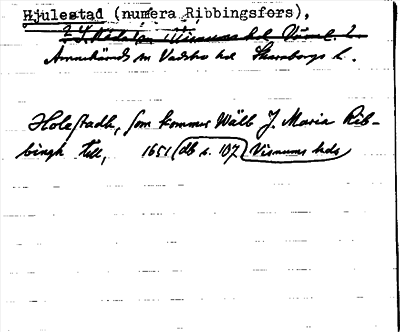 Hjulestad (numera Ribbingsfors),
Amnehärads sn Vadsbo hd Skaraborgs l.
Holestadh, som kommer Wälb J. Maria Rib-
bingh till, 1651 (db s. 187 Visnums hds